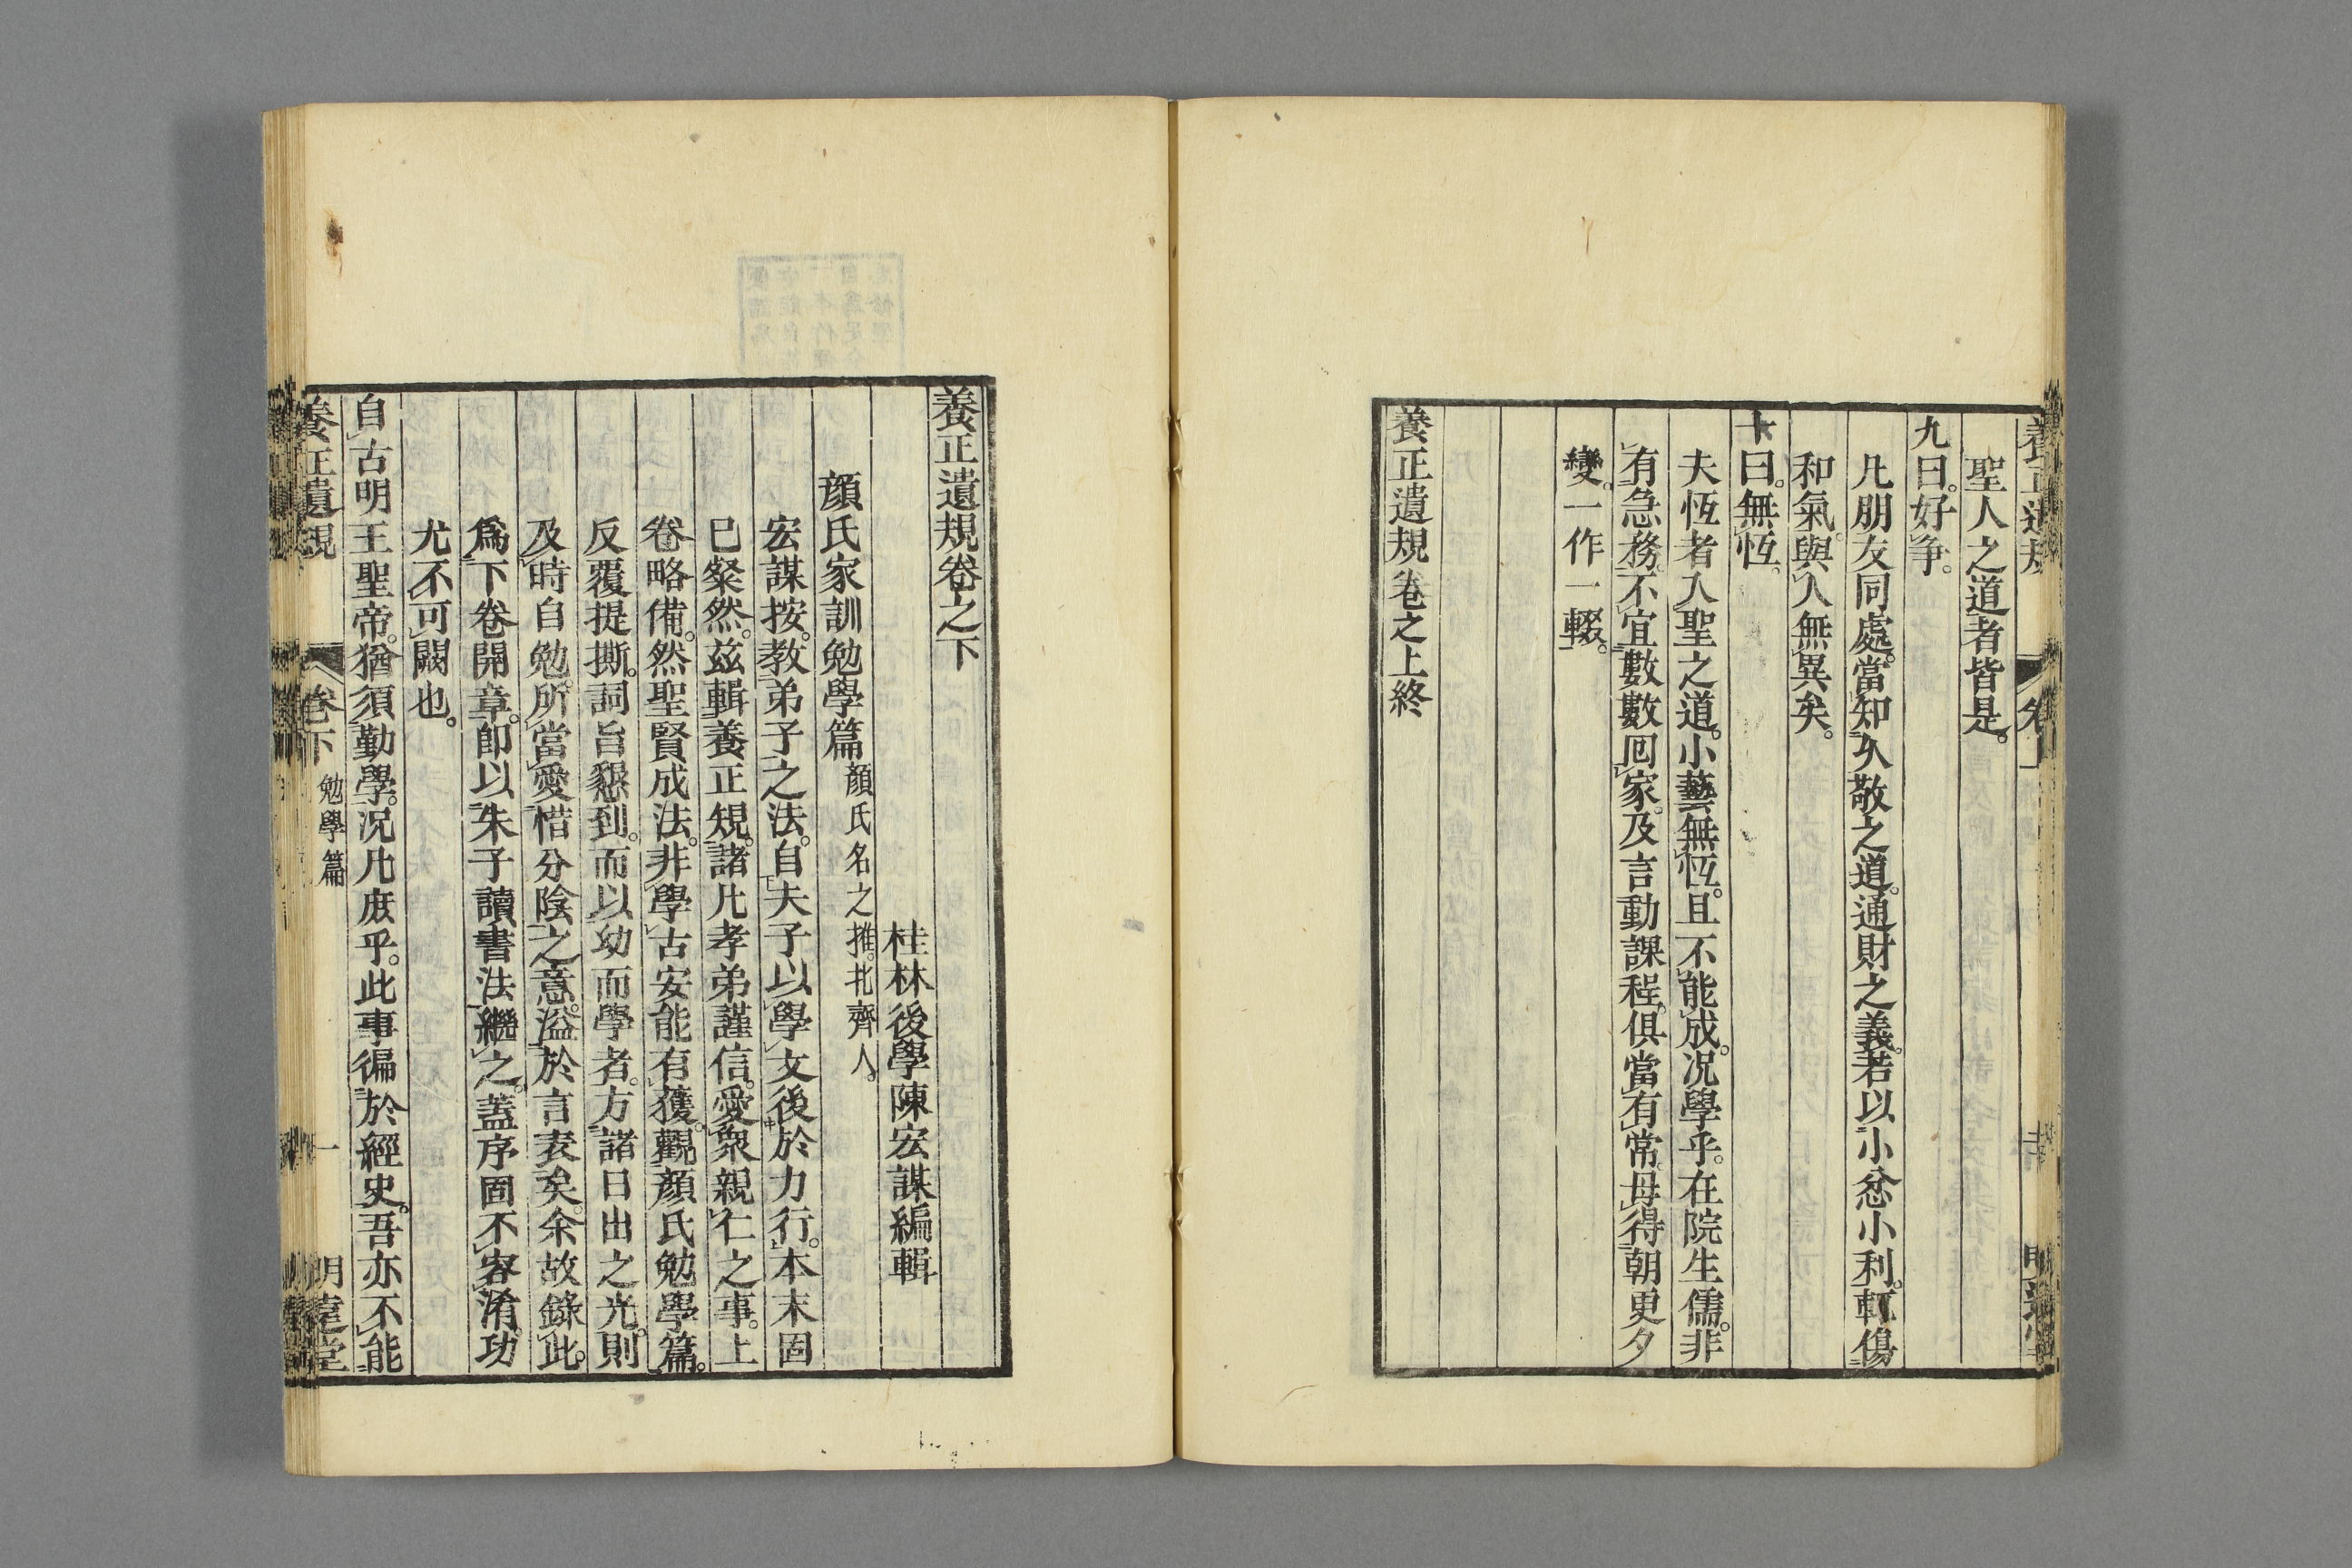 聖人之道者皆是。
九曰。好爭。
凡朋友同處。當知久敬之道。通財之義。若以小忿小利。輒傷
和氣。與人無異矣。
十曰。無恆。
夫恆者入聖之道。小藝無恆。且不能成。況學乎。在院生儒。非
有急務。不宜數數囘家。及言動課程。俱當有常。毋得朝更夕
變。一作一輟。
養正遺規卷之上終
養正遺規卷之下
桂林後學陳宏謀編輯
顏氏家訓勉學篇顏氏名之推。北齊人。
宏謀按。教弟子之法。自夫子以學文後於力行。本末固
已粲然。茲輯養正規。諸凡孝弟謹信。愛衆親仁之事。上
卷略備。然聖賢成法。非學古安能有獲。觀顏氏勉學篇。
反覆提撕。詞旨懇到。而以幼而學者。方諸日出之光。則
及時自勉。所當愛惜分陰之意。溢於言表矣。余故錄此。
爲下卷開章。卽以朱子讀書法繼之。蓋序固不容淆。功
尤不可闕也。
自古明王聖帝。猶須勤學。況凡庶乎。此事徧於經史。吾亦不能
養正遺規 卷下 勉學篇 一 明遠堂